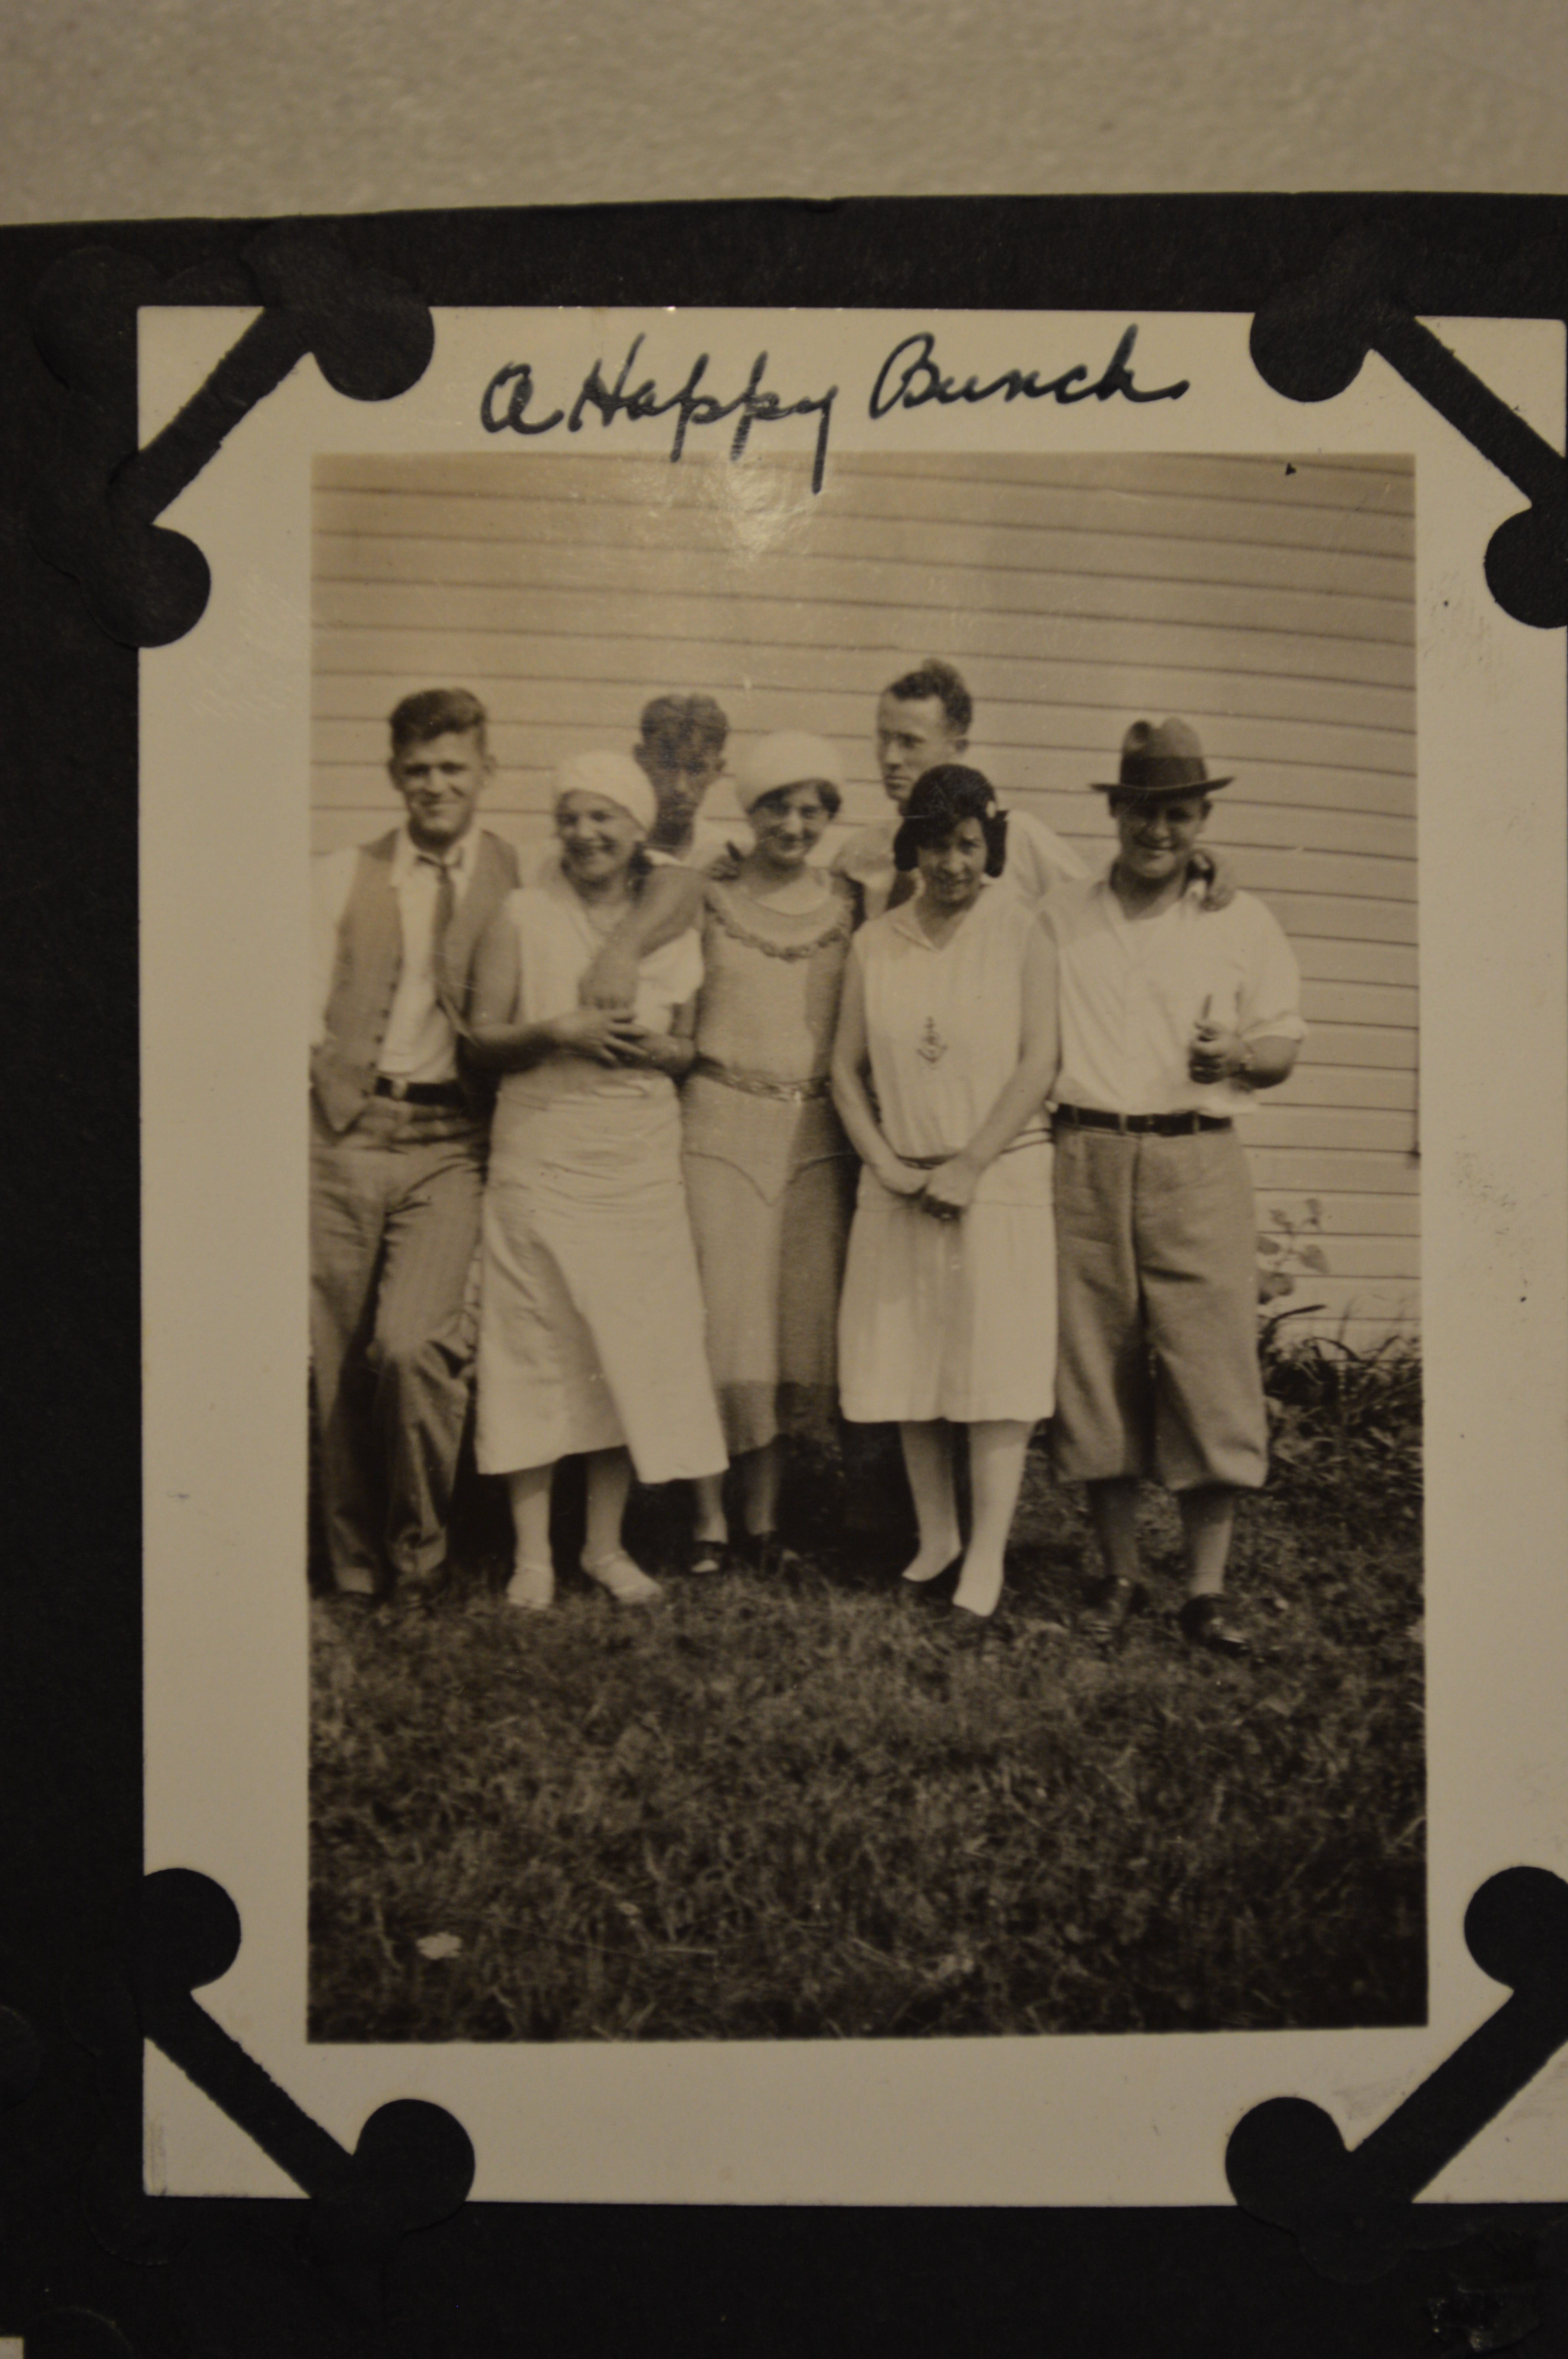 A Happy Bunch.